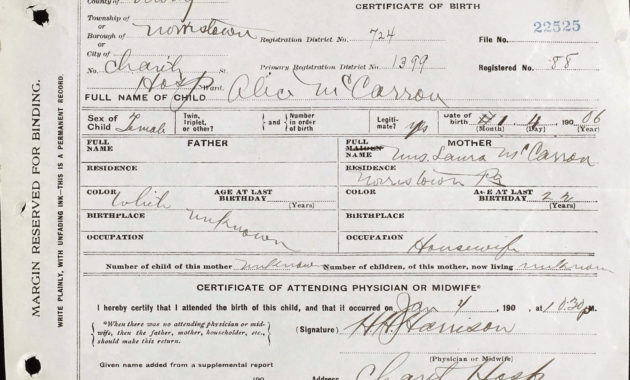 County of
CERTIFICATE OF BIRTH
Township of
or
Borough of Norristown Registration District No. 724 File No. 22525
or
City of
No. Charity Hosp St. Ward. Primary Registration District No. 1399 Registered No. 88
FULL NAME OF CHILD Alice McCarron
Sex of Child Female Twin, Triplet, or other? and Number in order of birth Legiti-mate? yes Date of birth 1 4 1906
(Month) (Day) (Year)
FULL NAME FATHER
FULL MAIDEN NAME MOTHER Mrs. Laura McCarron
RESIDENCE
RESIDENCE Norristown Pa
COLOR White AGE AT LAST BIRTHDAY (Years)
COLOR AGE AT LAST BIRTHDAY 22 (Years)
BIRTHPLACE unknown
BIRTHPLACE
OCCUPATION
OCCUPATION Housewife
Number of child of this mother unknown Number of children, of this mother, now living unknown
CERTIFICATE OF ATTENDING PHYSICIAN OR MIDWIFE*
I hereby certify that I attended the birth of this child, and that it occurred on Jan 4, 190 , at 10:30 P.M.
*When there was no attending physician or mid-
wife, then the father, mother, householder, etc.,
should make this return.
(Signature) H H Harrison
(Physician or Midwife)
Given name added from a supplemental report
190 Address Charit Hosp
MARGIN RESERVED FOR BINDING.
WRITE PLAINLY, WITH UNFADING INK—THIS IS A PERMANENT RECORD.